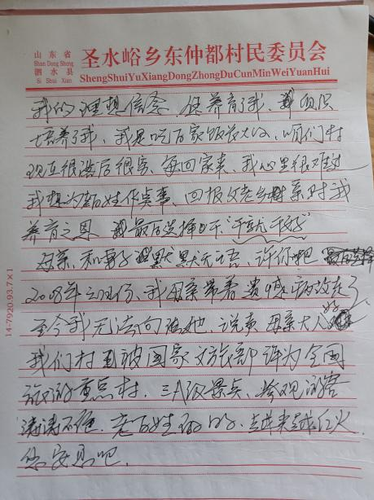 山东省
Shan Dong Sheng
泗水县
Si Shui Xian
圣水峪乡东仲都村民委员会
ShengShuiYuXiangDongZhongDuCunMinWeiYuanHui
我的理想信念、保养育了我、
培养了我、我是吃百家饭长大的、咱们村
现在很落后很穷、每回家来、我心里很难过
我想为百姓作点事、回报父老乡亲对我
养育之恩、我最后选择了“
母亲、和妻子默默无语、许你吧
2008年 月份、我母亲带着遗憾病故走了
至今我无法向她、说声母亲大人
我们村 被国家文旅部评为全国
旅游重点村、三A级景点、参观游客
涛涛不绝、老百姓的 越来越红火
您安息吧.
14-7920.93.7×1